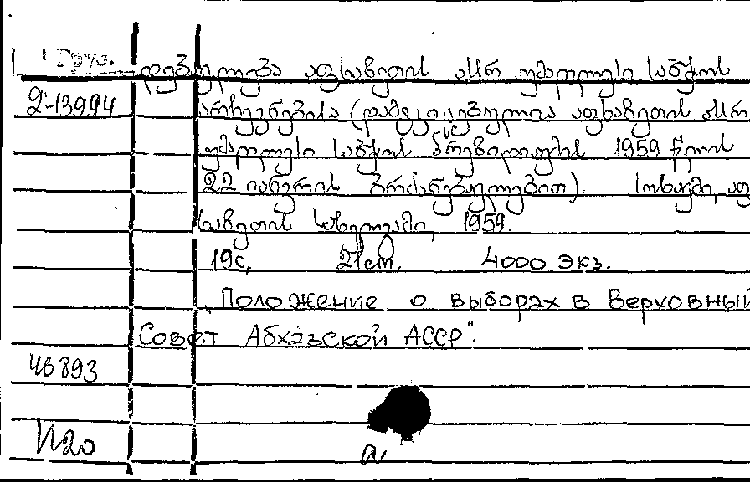 Груз. დებულება აფხაზეთის ასსრ უმაღლესი საბჭოს
2-13994 არჩევნებისა (დამტკიცებულია აფხაზეთის ასსრ
უმაღლესი საბჭოს პრეზიდიუმის 1959 წლის
22 იანვრის ბრძანებულებით). სოხუმი, აფ
ხაზეთის სახელგამი, 1959.
19с, 21см. 4000 экз.
„Положение о выборах в Верховный
Совет Абхазской АССР".
46893
N20